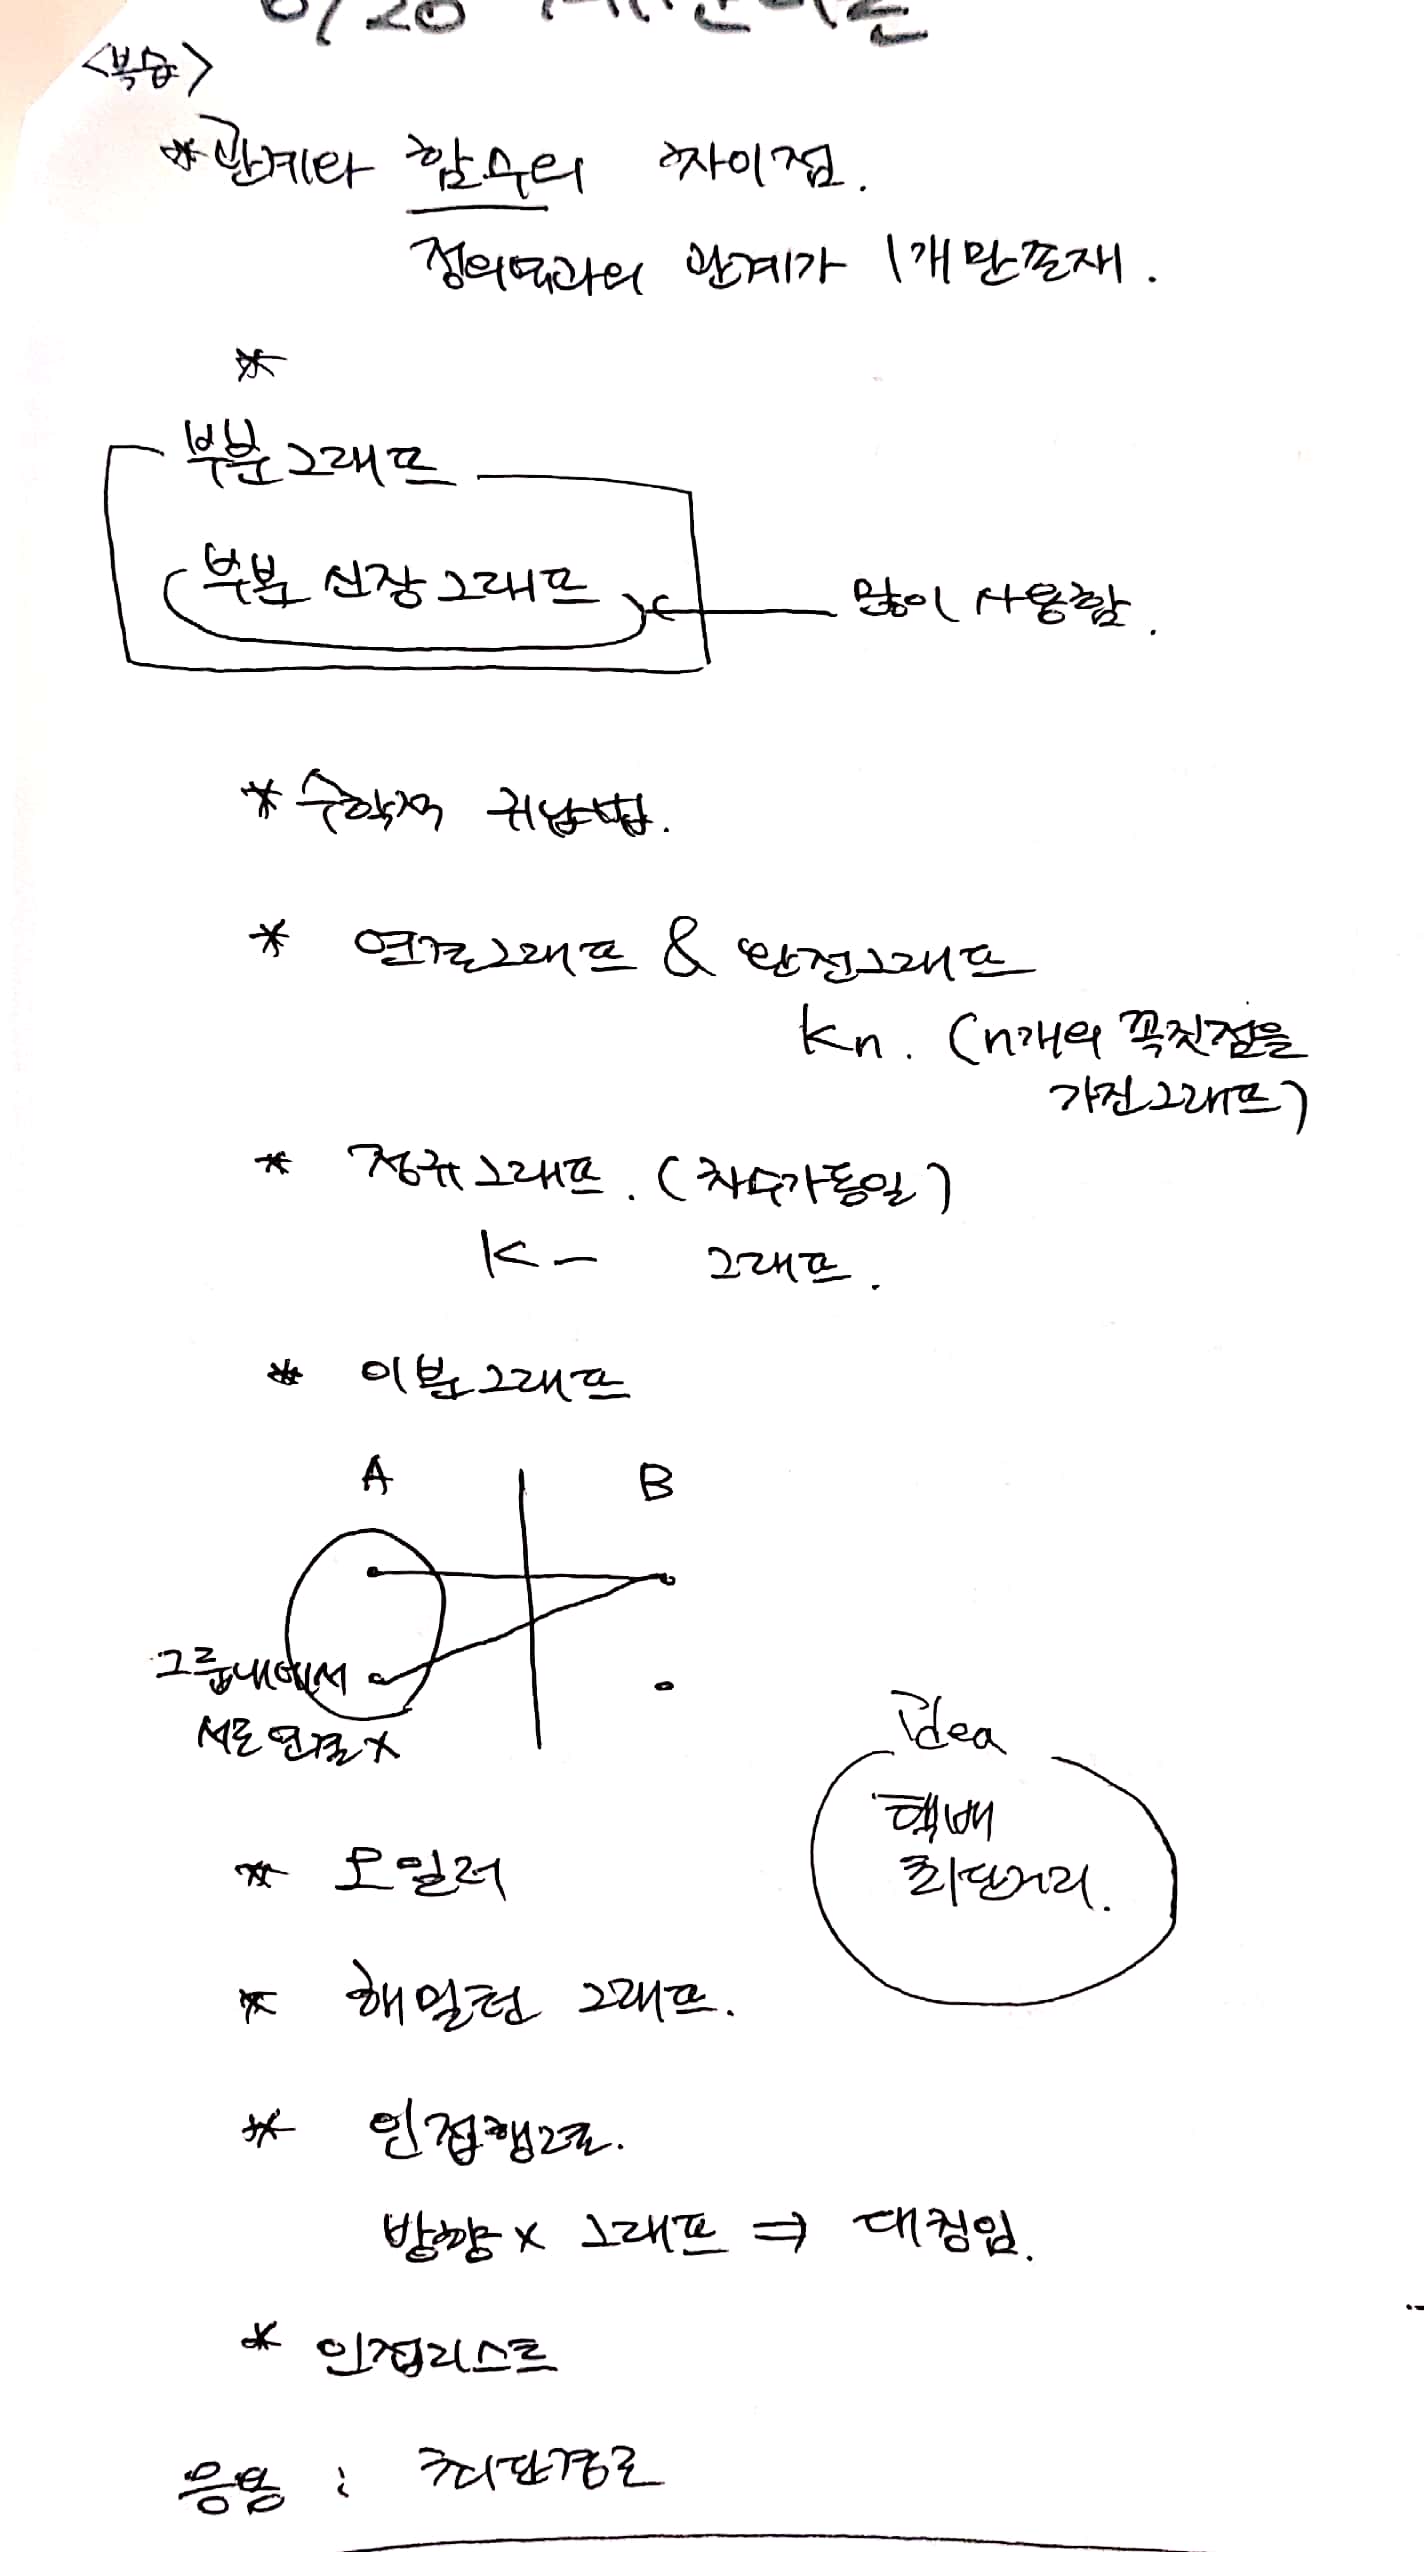 <복습>
* 관계와 함수의 차이점.
정의역과의 관계가 1개만 존재.
*
부분그래프
부분 신장그래프
많이 사용함.
* 수학적 귀납법.
* 연결그래프 & 완전그래프
Kn. (n개의 꼭짓점을
가진그래프)
* 정규그래프. (차수가동일)
K- 그래프.
* 이분그래프
A B
그룹내에서
서로연결x
Idea
택배
최단거리.
* 오일러
* 해밀턴 그래프.
* 인접행렬.
방향x 그래프 ⇒ 대칭임.
* 인접리스트
응용 : 최단경로